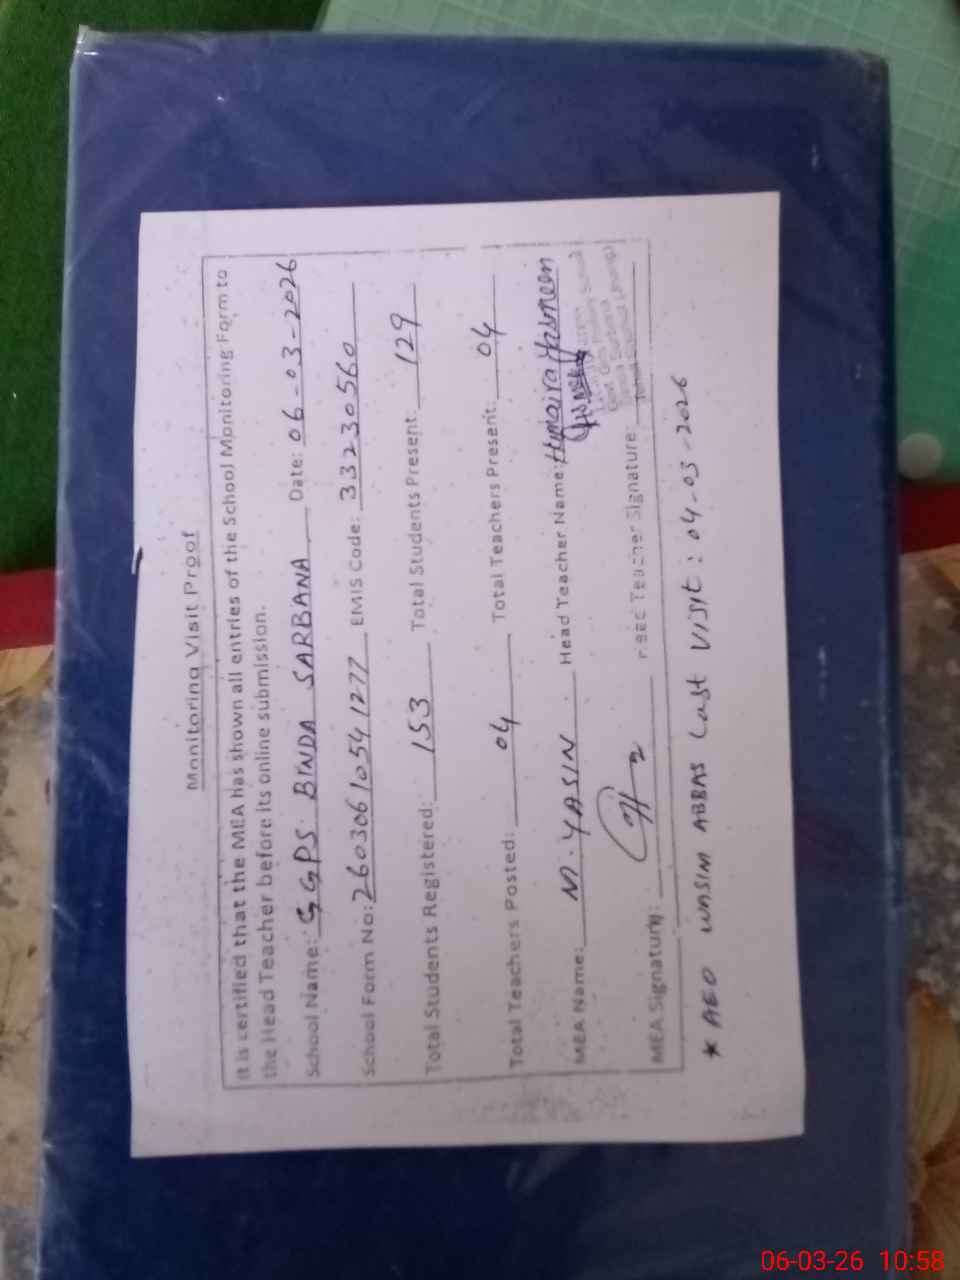 Monitoring Visit Proof
It is certified that the MEA has shown all entries of the School Monitoring Form to
the Head Teacher before its online submission.
School Name: GGPS BINDA SARBANA Date: 06-03-2026
School Form No: 26030610541277 EMIS Code: 33230560
Total Students Registered: 153 Total Students Present: 129
Total Teachers Posted: 04 Total Teachers Present: 04
MEA Name: M. YASIN Head Teacher Name: Humaira Yasmeen
MEA Signature: Head Teacher Signature:
* AEO WASIM ABBAS Last VISIT: 04-03-2026
06-03-26 10:58